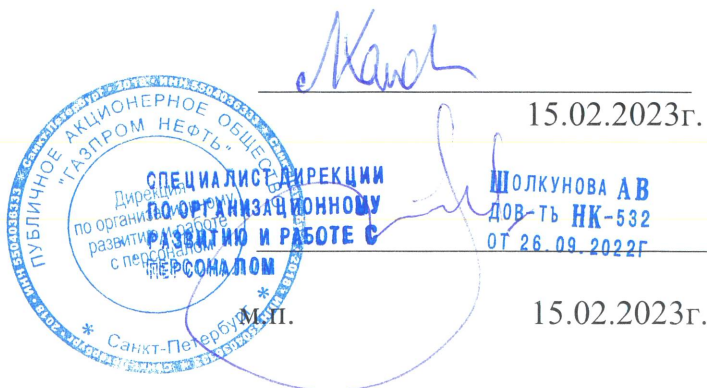 15.02.2023г.
ПУБЛИЧНОЕ АКЦИОНЕРНОЕ ОБЩЕСТВО
"ГАЗПРОМ НЕФТЬ"
* Санкт-Петербург *
Дирекция
по организационному
развитию и работе
с персоналом
СПЕЦИАЛИСТ ДИРЕКЦИИ
ПО ОРГАНИЗАЦИОННОМУ
РАЗВИТИЮ И РАБОТЕ С
ПЕРСОНАЛОМ
ШОЛКУНОВА АВ
ДОВ-ТЬ НК-532
ОТ 26.09.2022Г
М.П.
15.02.2023г.